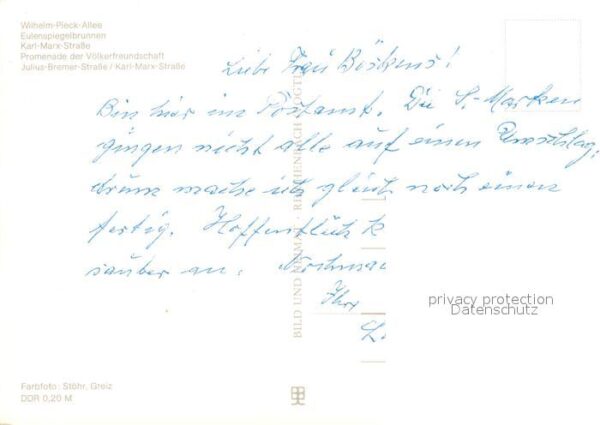 Wilhelm-Pieck-Allee
Eulenspiegelbrunnen
Karl-Marx-Straße
Promenade der Völkerfreundschaft
Julius-Bremer-Straße / Karl-Marx-Straße
Liebe Frau Böskens!
Bin hier im Postamt. Die S.-Marken
gingen nicht alle auf einen Umschlag,
drum mache ich gleich noch einen
fertig. Hoffentlich k
sauber an. Nochma
Ihr
L.
BILD UND HEIMAT REICHENBACH VOGTL
privacy protection
Datenschutz
Farbfoto: Stöhr, Greiz
DDR 0,20 M